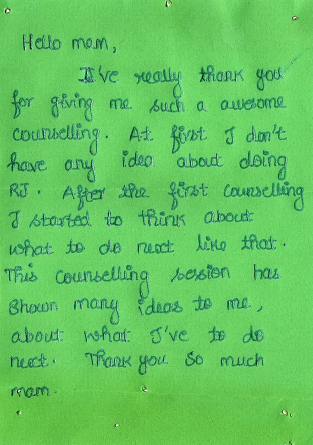 Hello mam,
I've really thank you
for giving me such a awesome
counselling. At first I don't
have any idea about doing
RJ. After the first counselling
I started to think about
what to do next like that.
This counselling session has
shown many ideas to me,
about what I've to do
next. Thank you so much
mam.